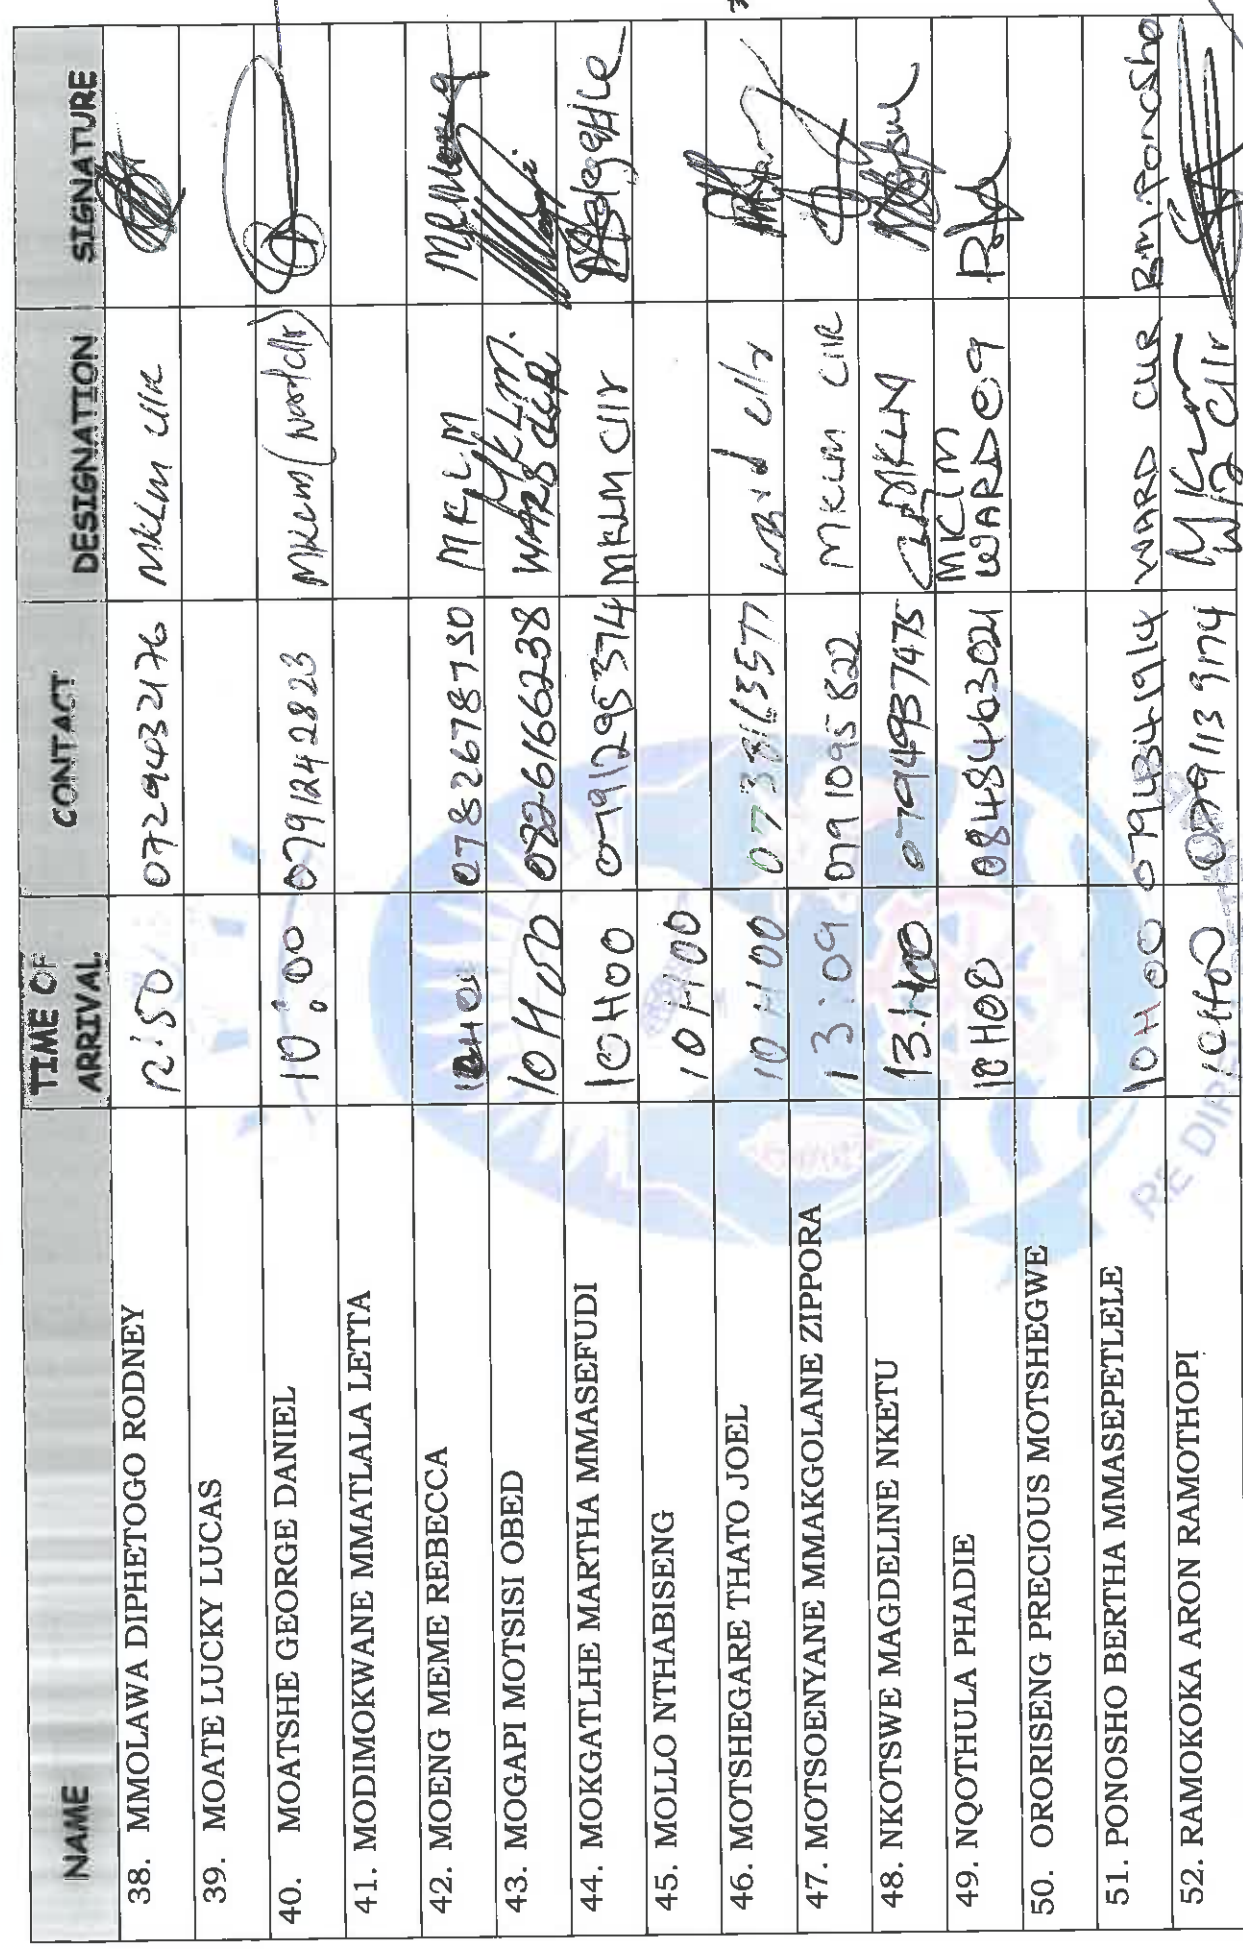 NAME TIME OF ARRIVAL CONTACT DESIGNATION SIGNATURE
38. MMOLAWA DIPHETOGO RODNEY 12:50 0729432176 MKLM Cllr
39. MOATE LUCKY LUCAS
40. MOATSHE GEORGE DANIEL 10:00 0791242823 MKLM (Ward Cllr)
41. MODIMOKWANE MMATLALA LETTA
42. MOENG MEME REBECCA 0782678730 MKLM MRMoeng
43. MOGAPI MOTSISI OBED 10H00 0826166238 MKLM. WARD
44. MOKGATLHE MARTHA MMASEFUDI 10H00 0791295374 MKLM Cllr
45. MOLLO NTHABISENG 10H00
46. MOTSHEGARE THATO JOEL 10H00 0738163577 Cllr
47. MOTSOENYANE MMAKGOLANE ZIPPORA 13:09 0791095822 MKLM CllR
48. NKOTSWE MAGDELINE NKETU 13.H00 0794937475 MKLM
49. NQOTHULA PHADIE 10H00 0848463021 MKLM WARD 09
50. ORORISENG PRECIOUS MOTSHEGWE
51. PONOSHO BERTHA MMASEPETLELE 10H00 0794341914 WARD CLLR R.M.Ponosho
52. RAMOKOKA ARON RAMOTHOPI 10H00 0791139174 MKLM Cllr
RE DIR